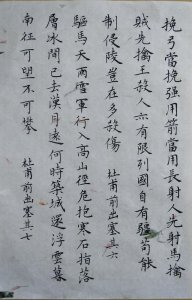 挽弓當挽强用箭當用長射人先射馬擒
賊先擒王殺人亦有限列國自有疆苟能
制侵陵豈在多殺傷 杜甫前出塞其六
驅馬天雨雪軍行入高山徑危抱寒石指落
層冰間已去漢月遠何時築城還浮雲暮
南征可望不可攀 杜甫前出塞其七